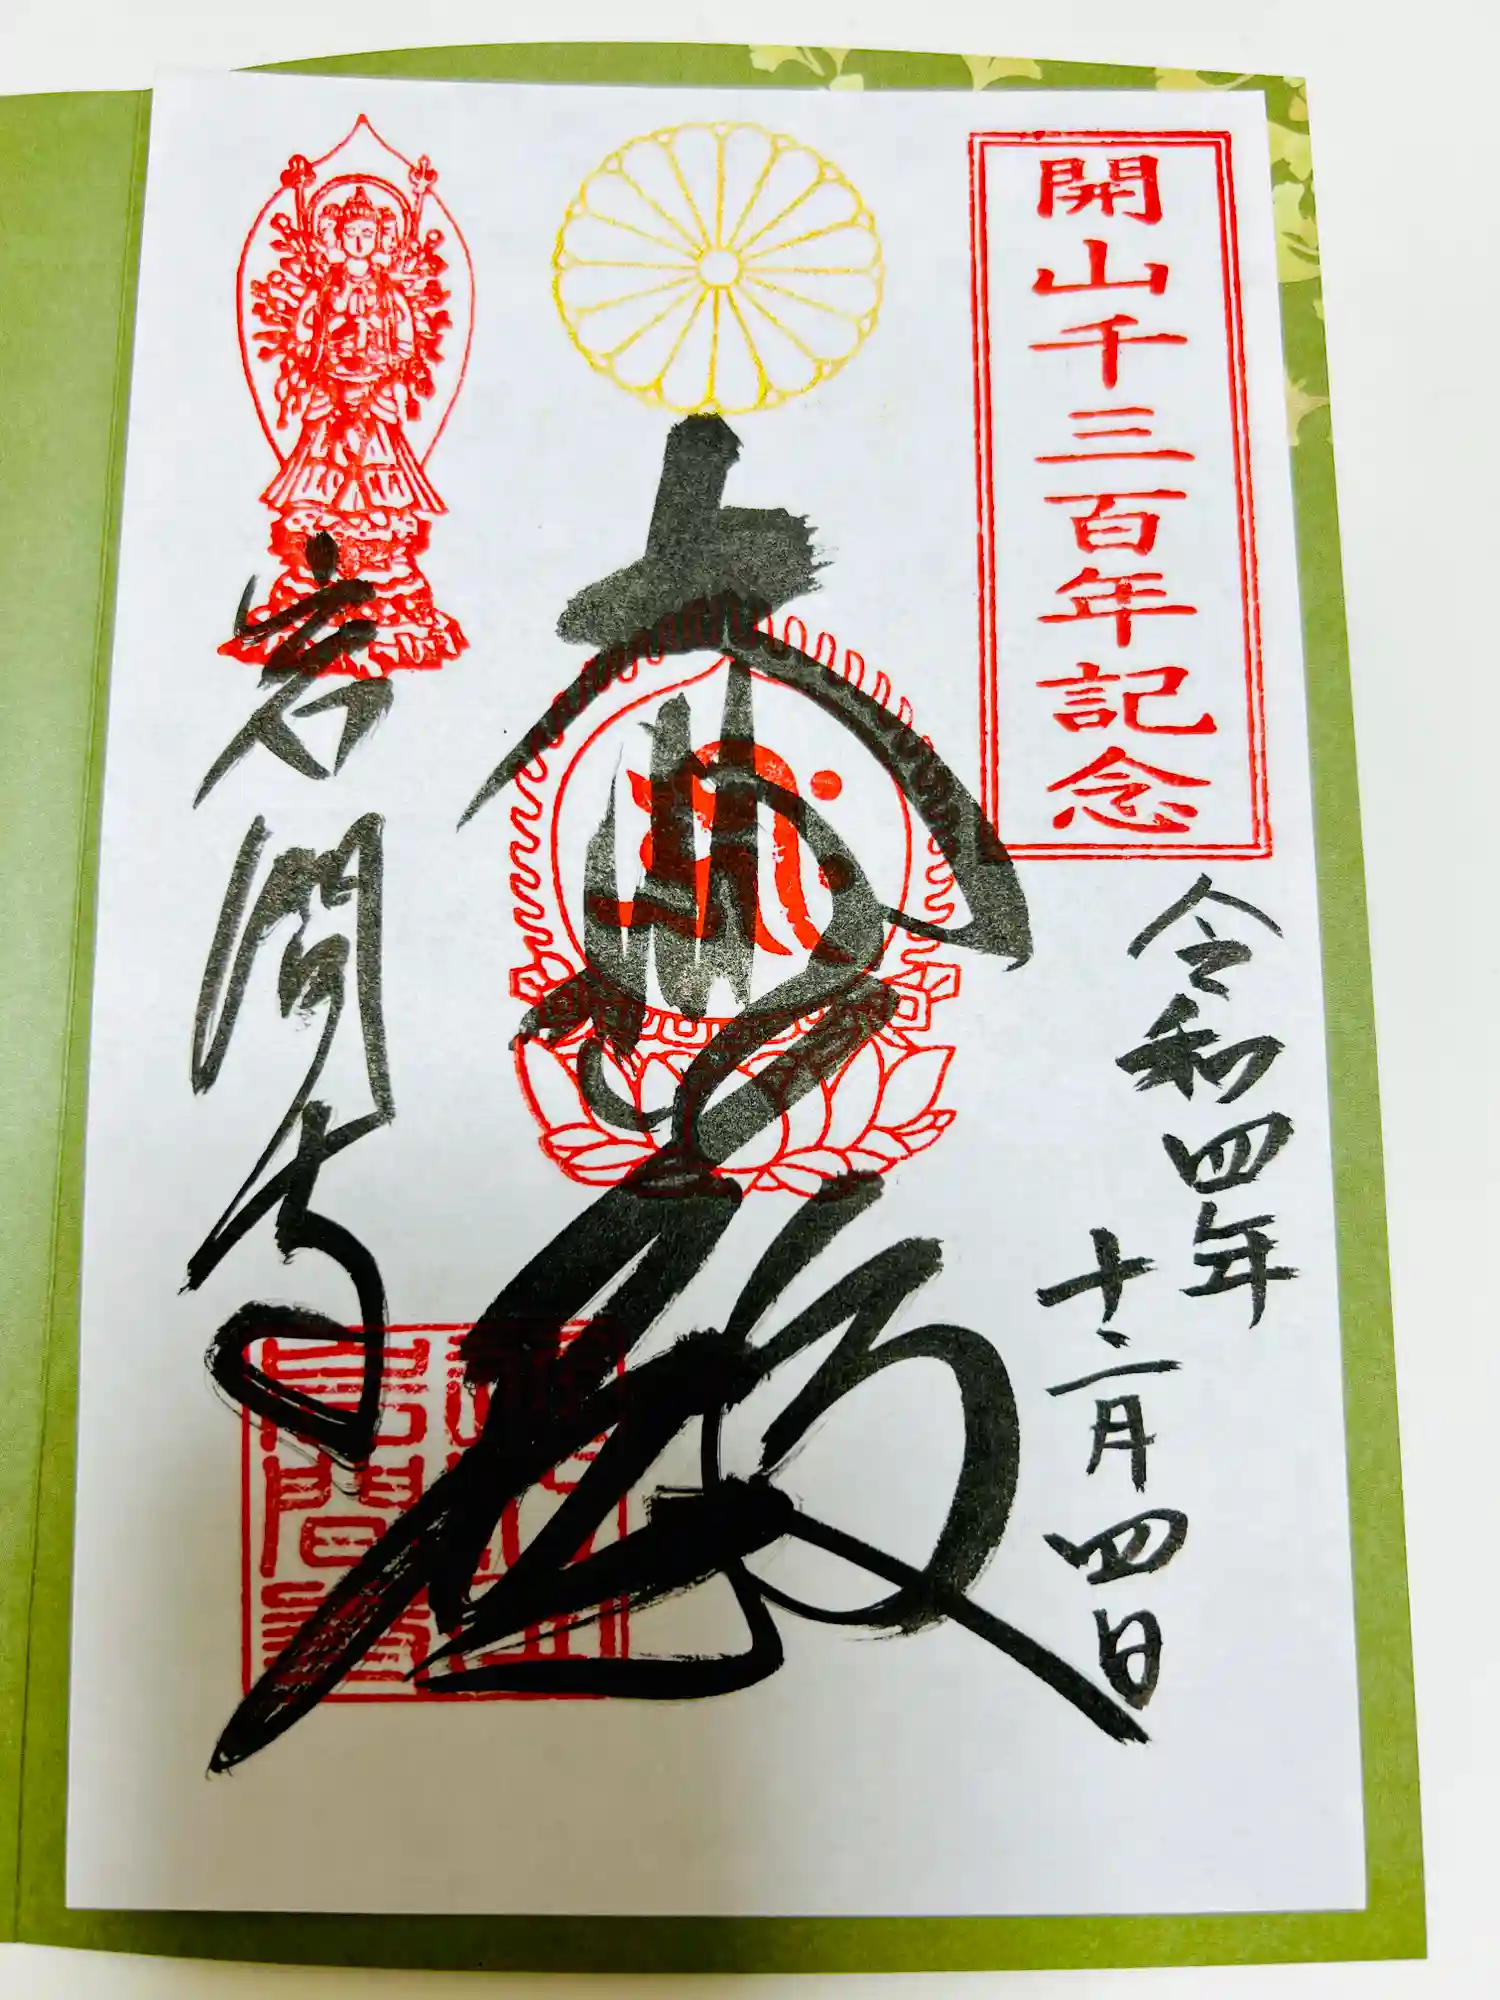 開山千三百年記念
令和四年
十二月四日
大悲殿
岩間寺